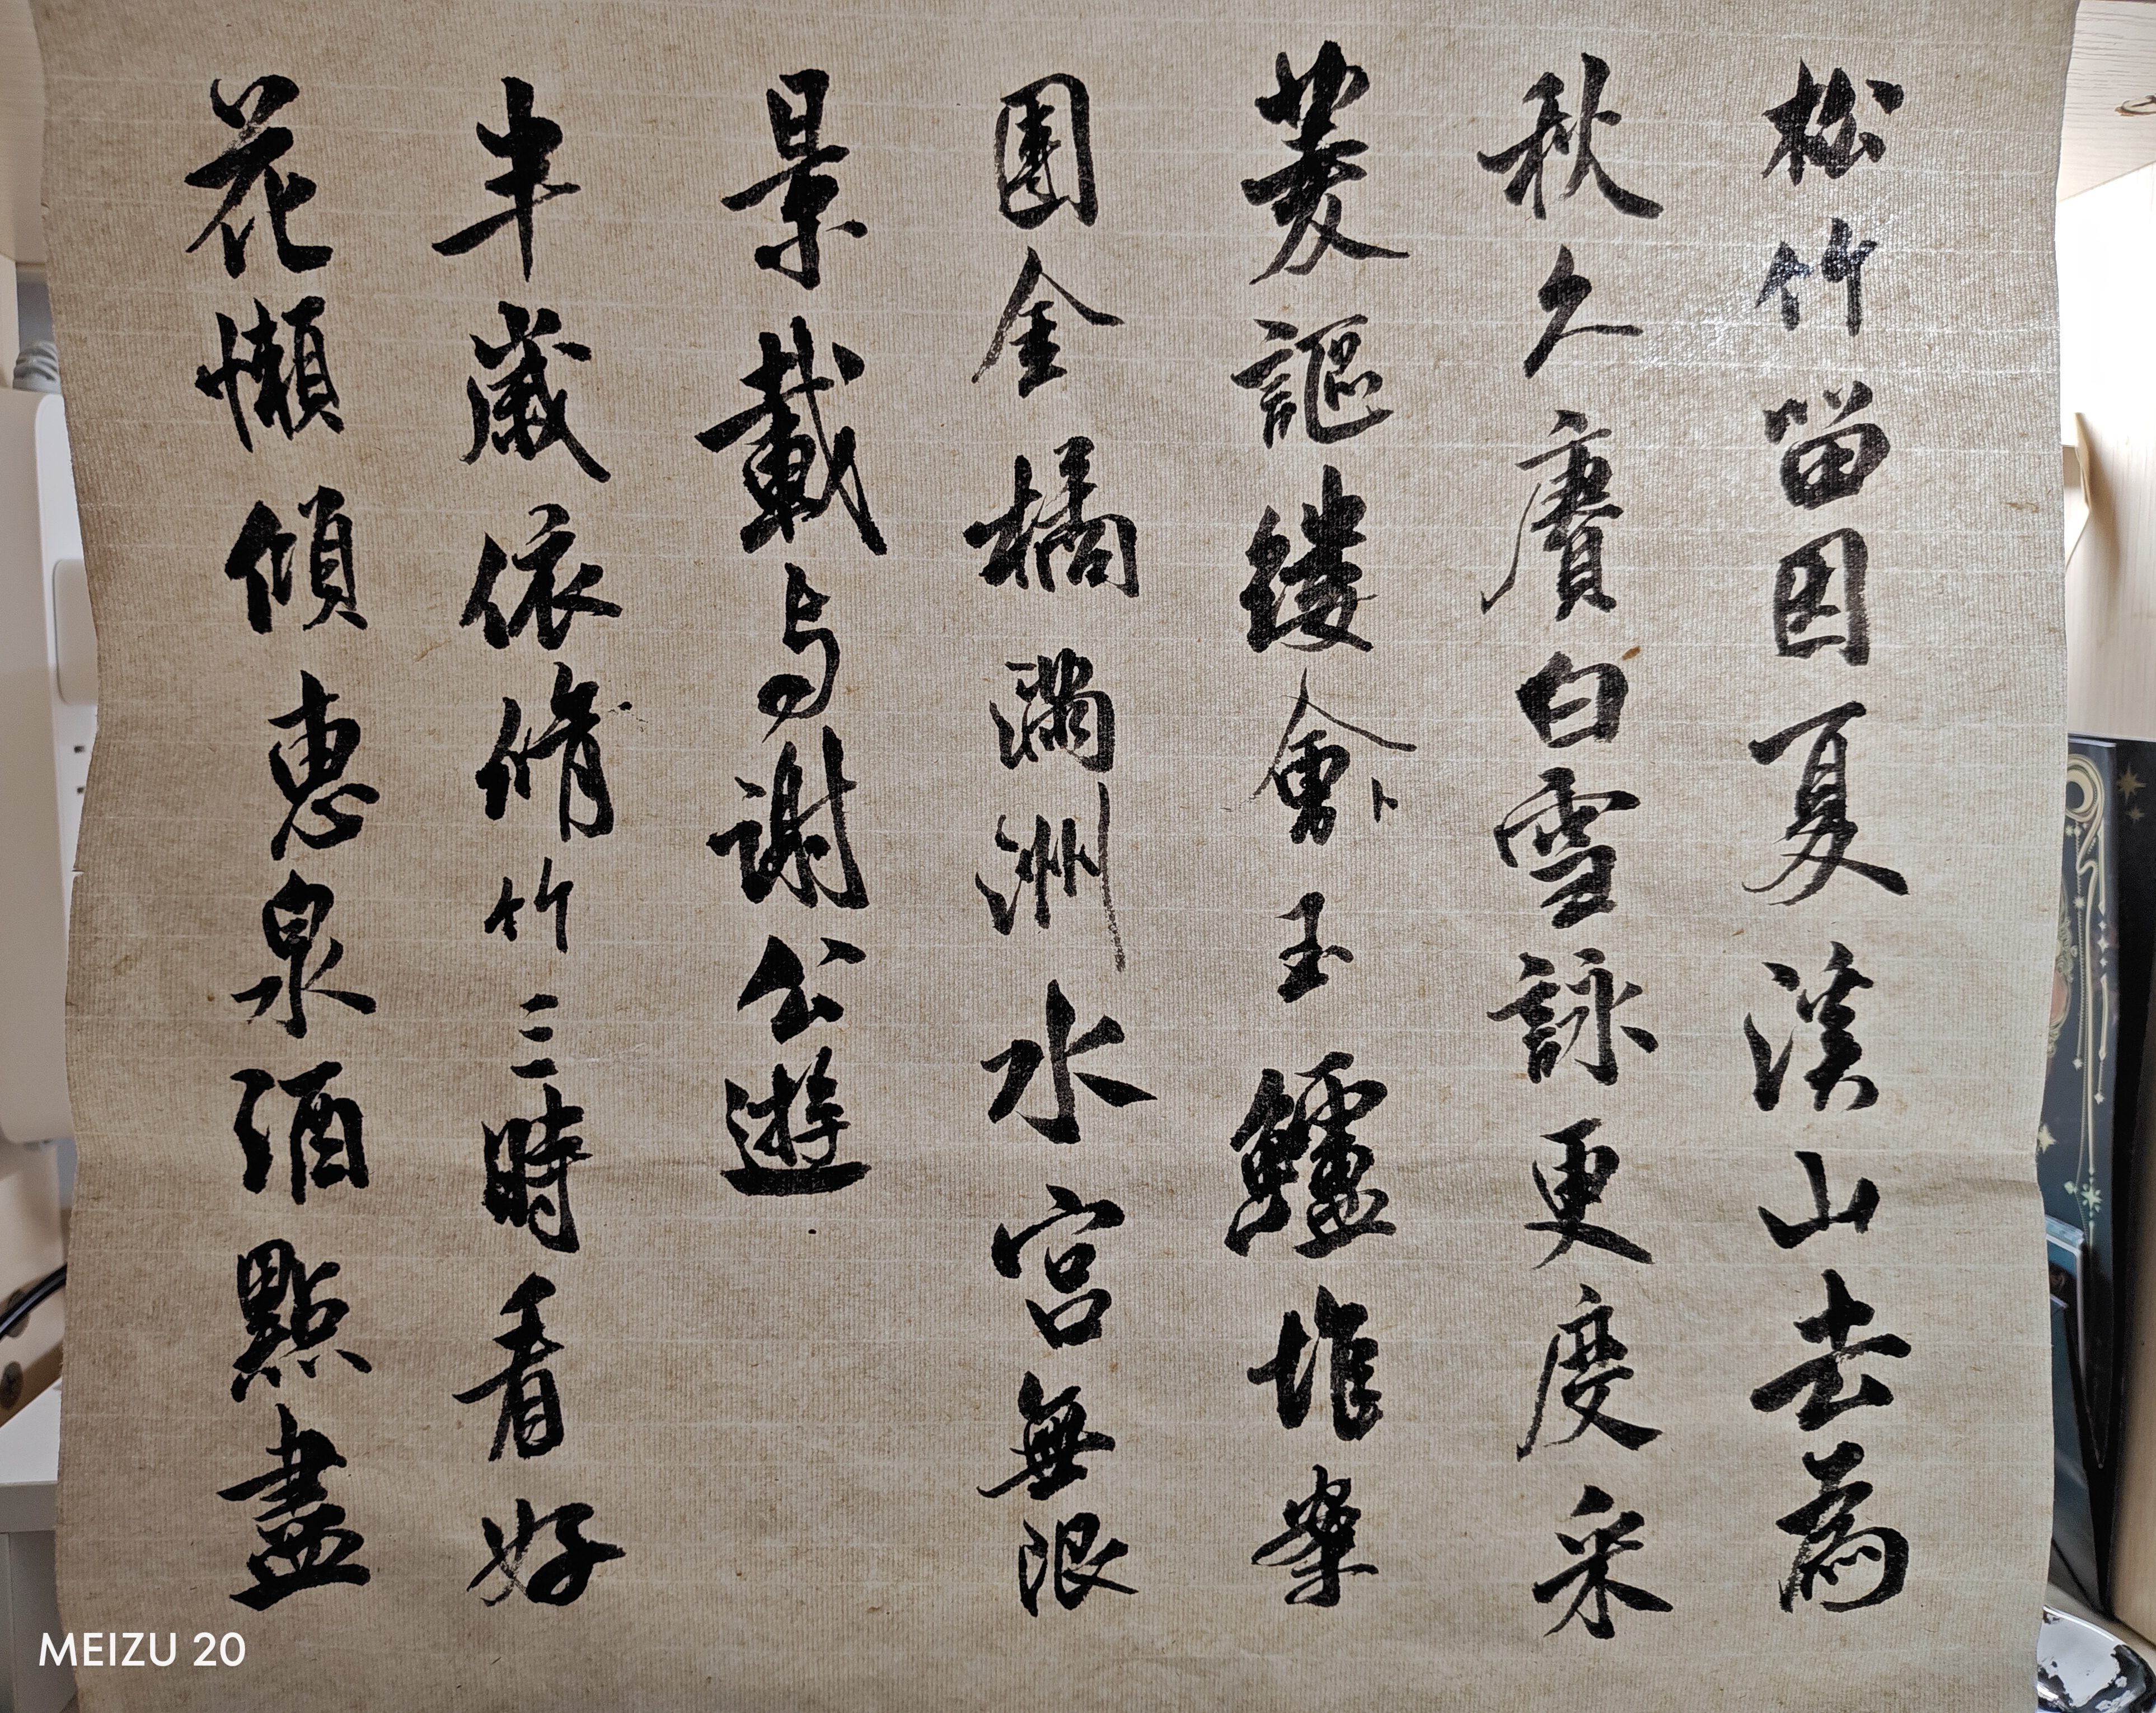 松竹留因夏溪山去為
秋久賡白雪詠更度采
菱謳縷會卜玉鱸堆案
團金橘滿洲水宮無限
景載与謝公遊
半歲依脩竹三時看好
花懶傾惠泉酒點盡
MEIZU 20